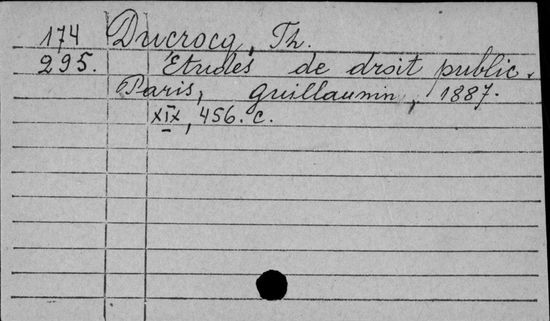 174 Ducrocq, Th.
295. Études de droit public.
Paris, Guillaumin, 1887.
XIX, 456. c.